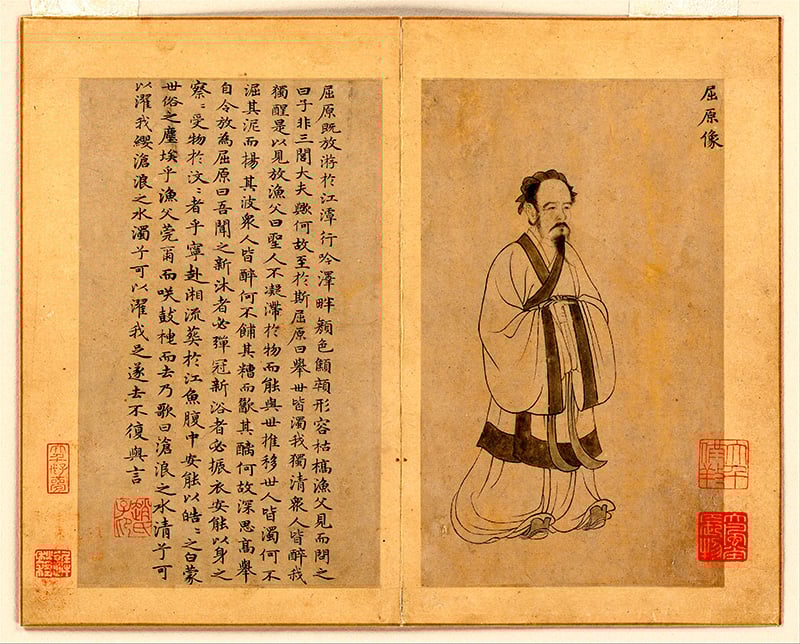 屈原像
屈原既放游於江潭行吟澤畔顏色顦顇形容枯槁漁父見而問之
曰子非三閭大夫歟何故至於斯屈原曰舉世皆濁我獨清衆人皆醉我
獨醒是以見放漁父曰聖人不凝滯於物而能與世推移世人皆濁何不
淈其泥而揚其波衆人皆醉何不餔其糟而歠其醨何故深思高舉
自令放為屈原曰吾聞之新沐者必彈冠新浴者必振衣安能以身之
察〻受物於汶〻者乎寧赴湘流葬於江魚腹中安能以皓〻之白蒙
世俗之塵埃乎漁父莞爾而咲鼓枻而去乃歌曰滄浪之水清兮可
以濯我纓滄浪之水濁兮可以濯我足遂去不復與言
趙氏子昂